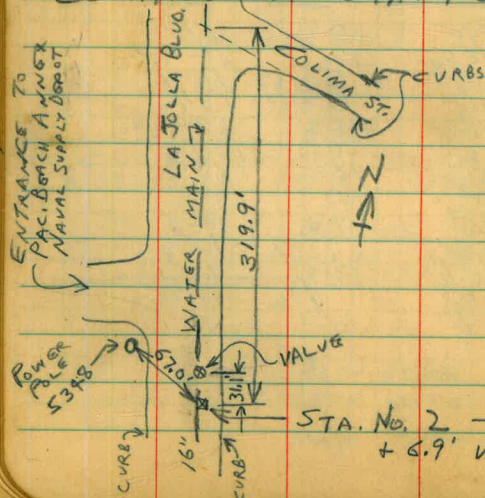 ENTRANCE TO
PAC. BEACH ANNEX
NAVAL SUPPLY DEPOT
LA JOLLA BLVD.
16" WATER MAIN
COLIMA ST.
CURBS
N
319.9'
POWER
POLE
5348
67.0'
31.1'
VALVE
CURB
CURB
STA. No. 2 -
+ 6.9'